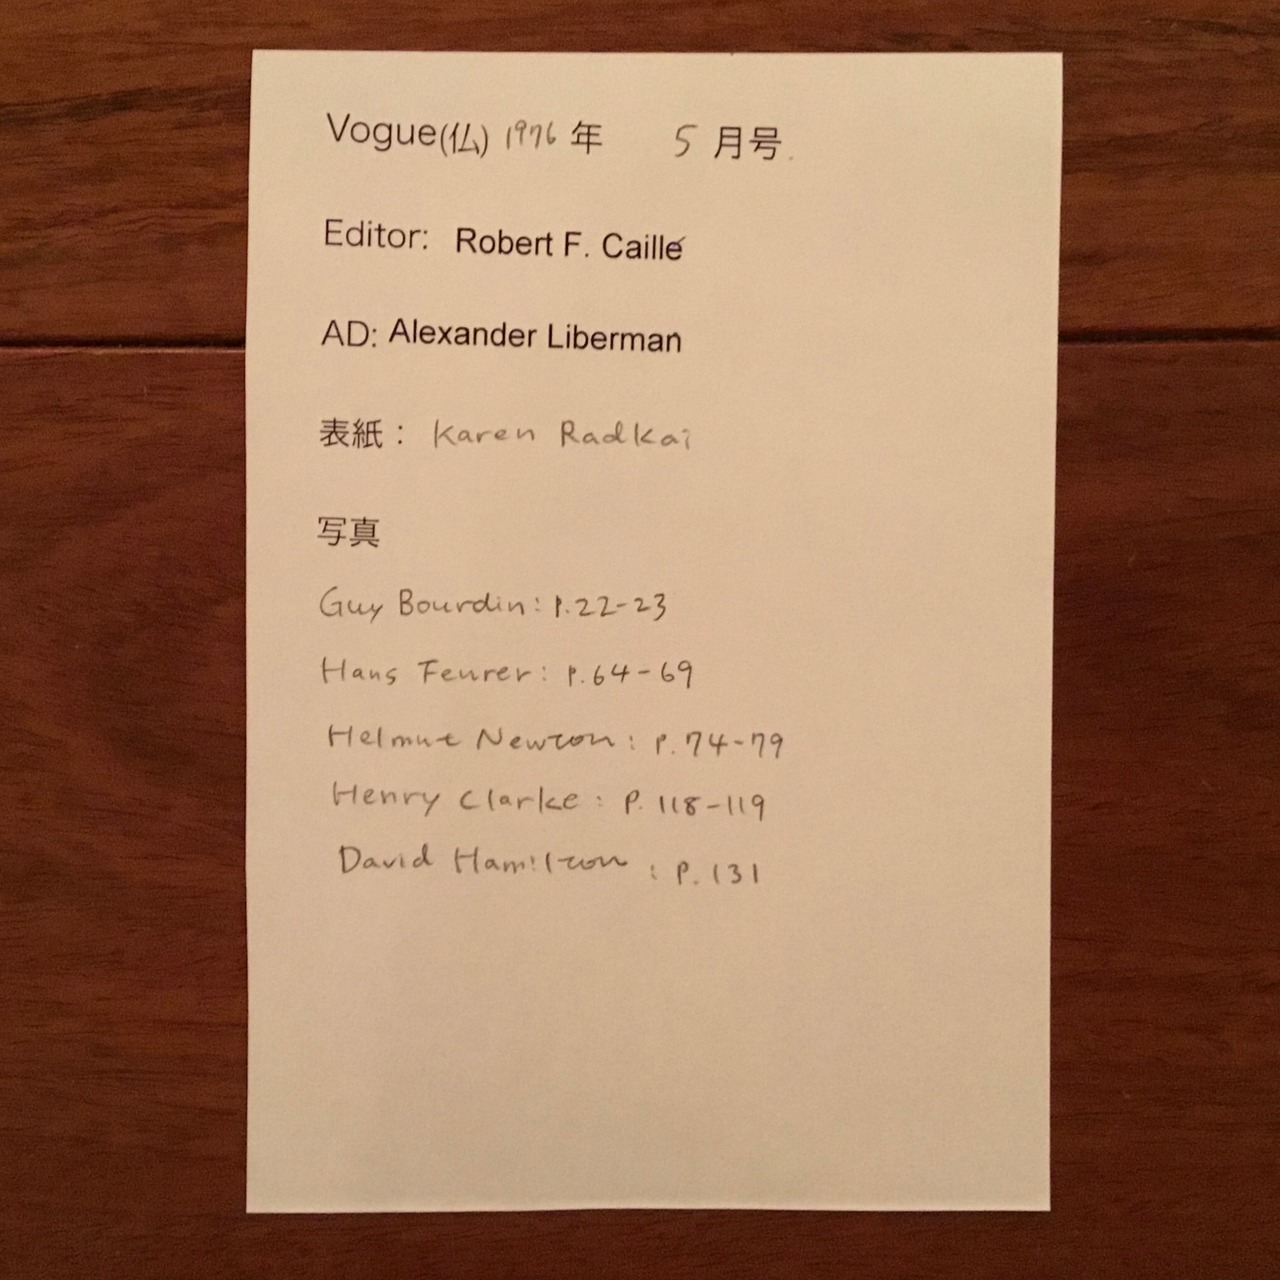 Vogue(仏) 1976 年 5 月号.
Editor: Robert F. Caillé
AD: Alexander Liberman
表紙： Karen Radkai
写真
Guy Bourdin: P.22-23
Hans Feurer: P.64-69
Helmut Newton: P.74-79
Henry Clarke: P.118-119
David Hamilton: P.131